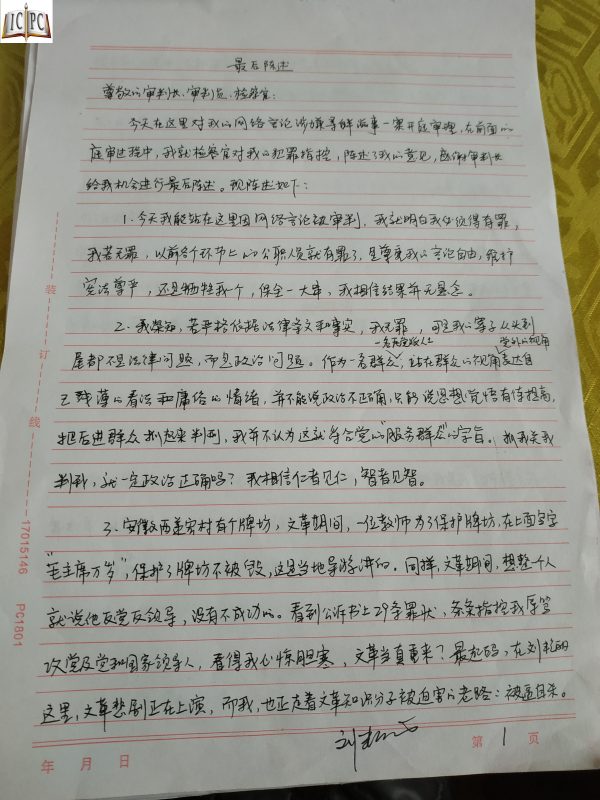 ICPC
最后陈述
尊敬的审判长、审判员、检察官:
今天在这里对我的网络言论涉嫌寻衅滋事一案开庭审理,在前面的
庭审过程中,我就检察官对我的犯罪指控,陈述了我的意见,感谢审判长
给我机会进行最后陈述。现陈述如下:
1. 今天我能站在这里因网络言论被审判,我就明白我必须得有罪,
我若无罪,以前各个环节上的公职人员就有罪了,是尊重我的言论自由,维护
宪法尊严,还是牺牲我一个,保全一大串,我相信结果并无悬念。
2. 我深知,若严格依据法律条文和事实,我无罪,可是我的案子从头到
尾都不是法律问题,而是政治问题。作为一名群众,站在群众的视角表达自
己残薄的看法和庸俗的情绪,并不能说政治不正确,只能说思想觉悟有待提高,
把后进群众抓起来判刑,我并不认为这就符合党的“服务群众”的宗旨。抓我关我
判我,就一定政治正确吗?我相信仁者见仁,智者见智。
3. 安徽西递宏村有个牌坊,文革期间,一位教师为了保护牌坊,在上面写字
“毛主席万岁”,保护了牌坊不被毁,这是当地导游讲的。同样,文革期间,想整个人
就说他反党反领导,没有不成功的。看到公诉书上29条罪状,条条指控我辱骂
攻党及党和国家领导人,看得我心惊胆寒,文革当真重来?最起码,在刘艳丽
这里,文革悲剧正在上演,而我,也正走着文革知识分子被迫害的老路:被逼自杀。
刘艳丽
年 月 日
第 1 页
装
订
线
17015146 PC1801